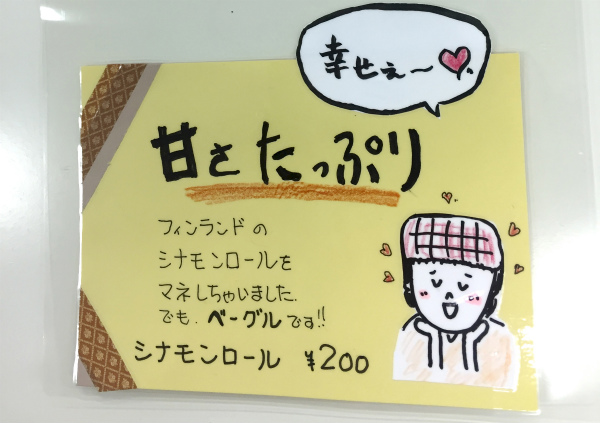 幸せぇ～
甘さたっぷり
フィンランドの
シナモンロールを
マネしちゃいました.
でも.ベーグルです!!
シナモンロール ¥200